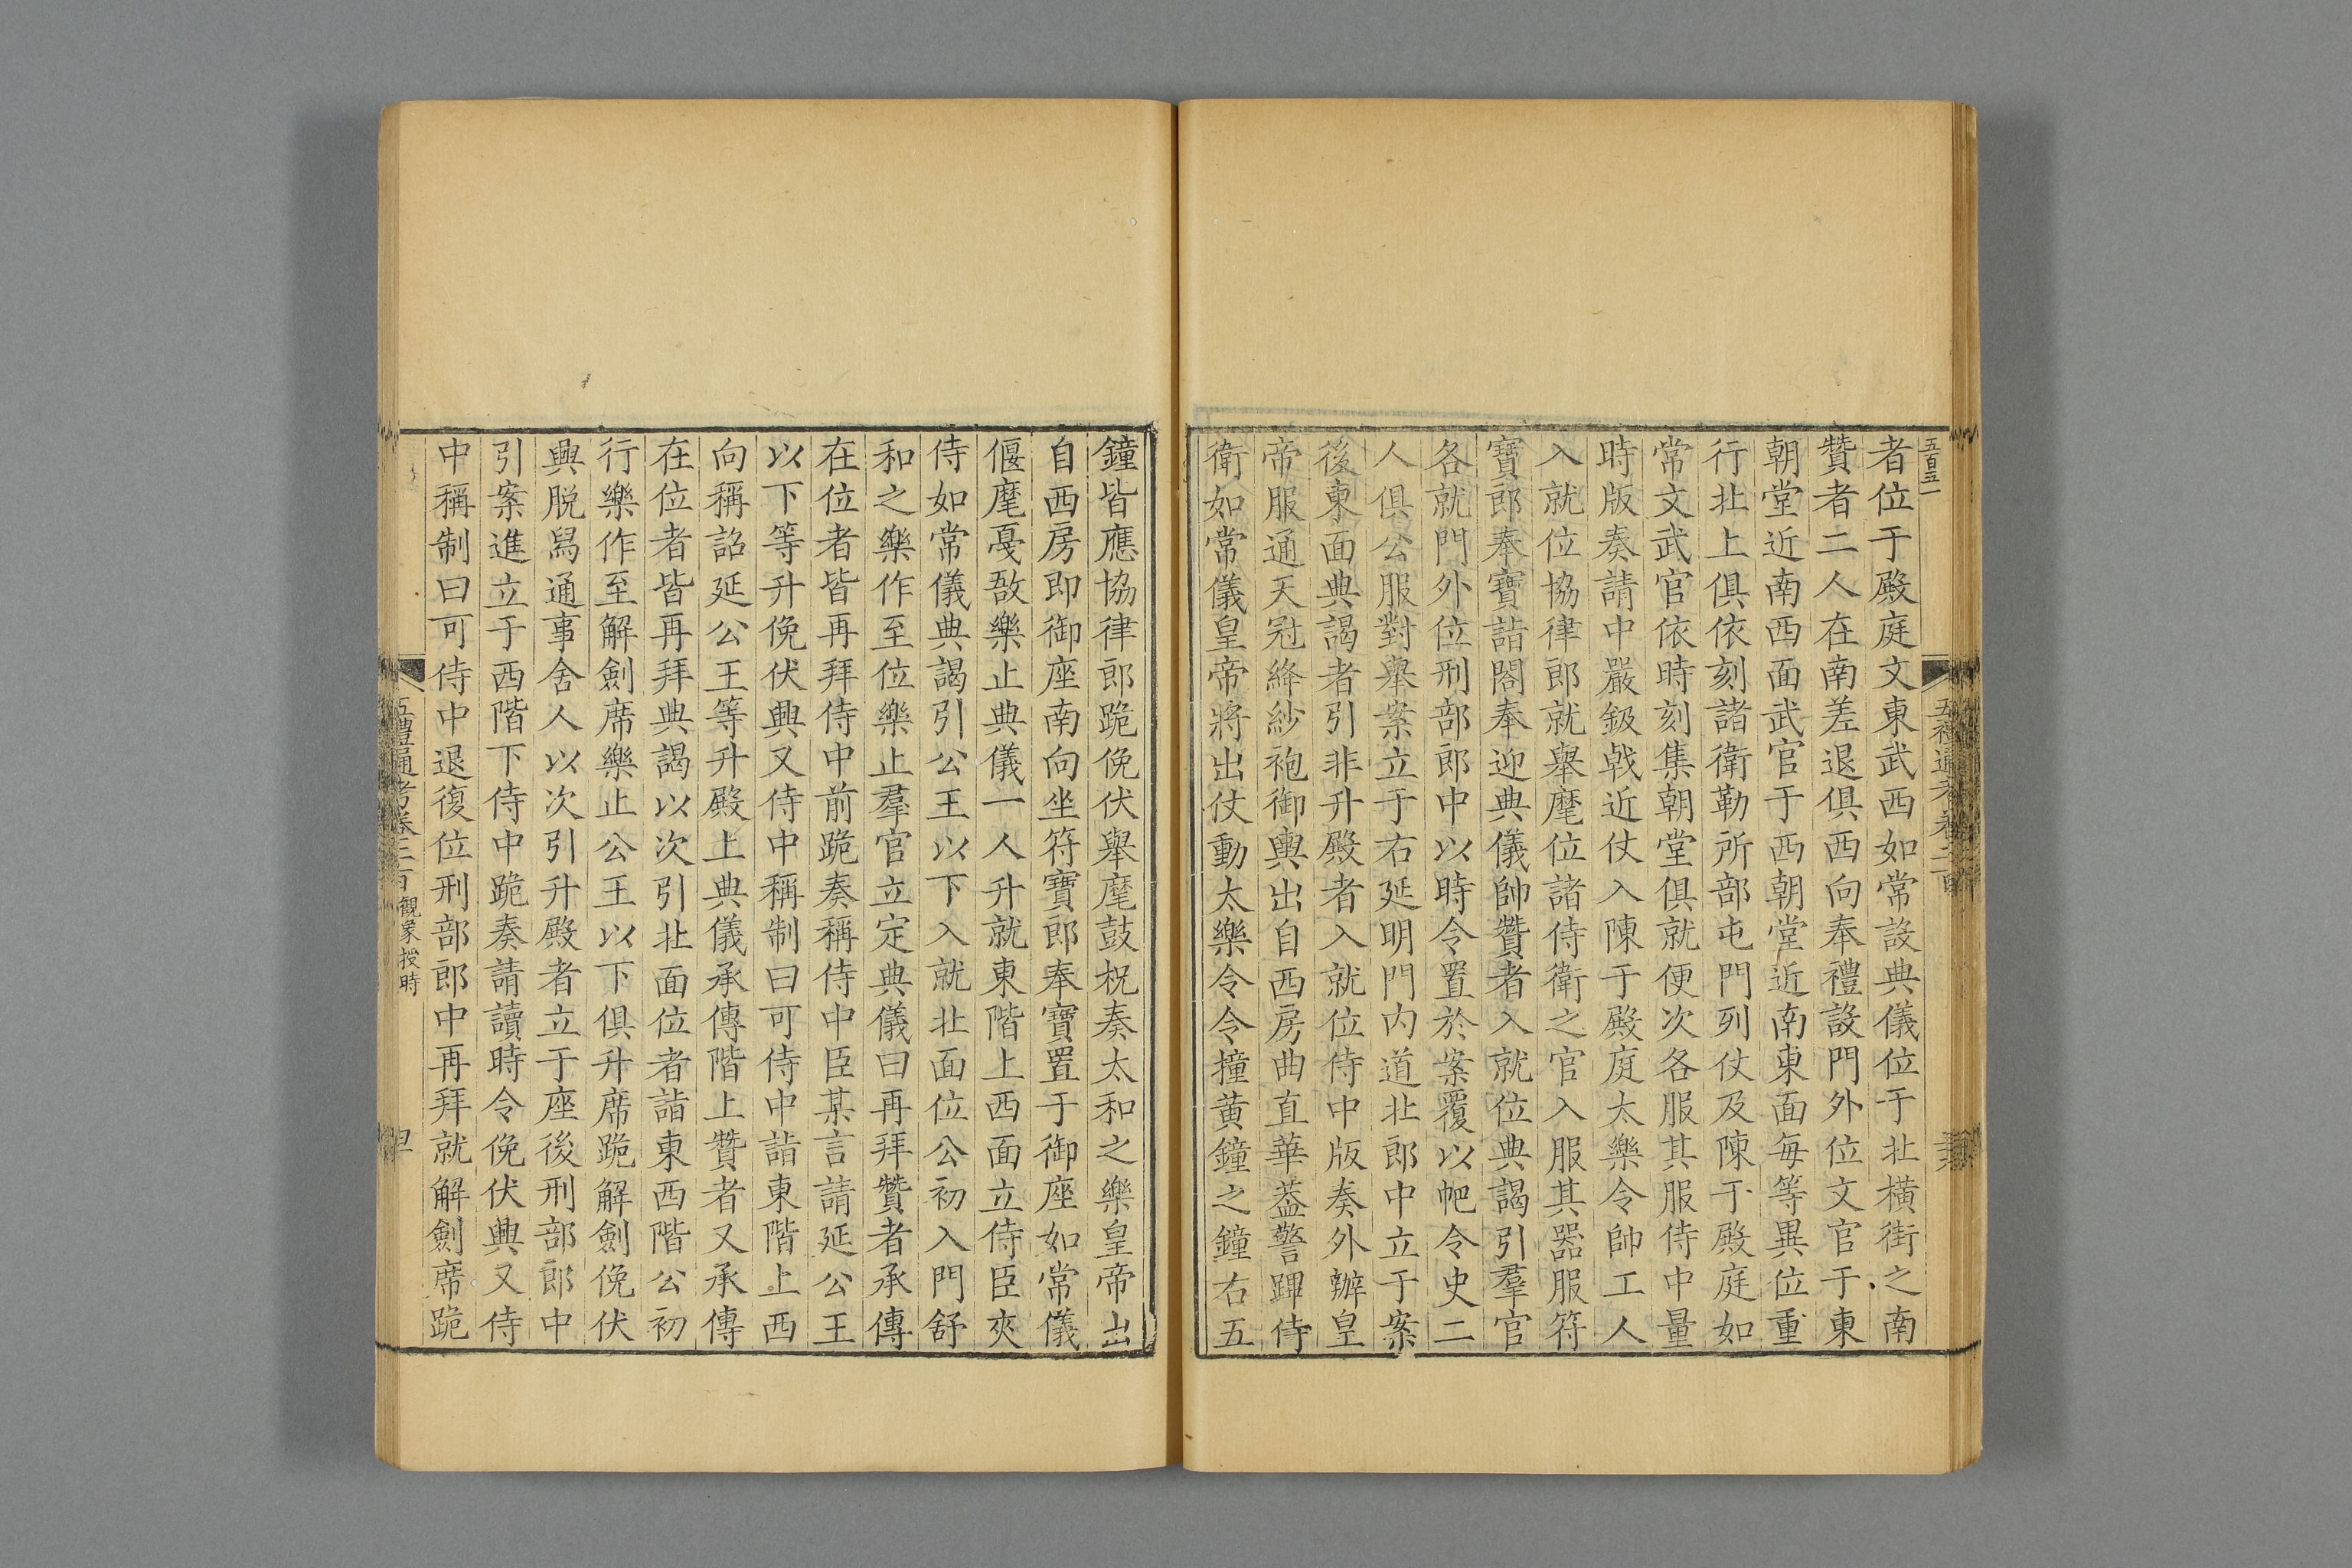 五百五一
者位于殿庭文東武西如常設典儀位于北橫街之南
贊者二人在南差退俱西向奉禮設門外位文官于東
朝堂近南西面武官于西朝堂近南東面每等異位重
行北上俱依刻諸衛勒所部屯門列仗及陳于殿庭如
常文武官依時刻集朝堂俱就便次各服其服侍中量
時版奏請中嚴鈒戟近仗入陳于殿庭太樂令帥工人
入就位協律郎就舉麾位諸侍衛之官入服其器服符
寶郎奉寶詣閤奉迎典儀帥贊者入就位典謁引羣官
各就門外位刑部郎中以時令置於案覆以帊令史二
人俱公服對舉案立于右延明門内道北郎中立于案
後東面典謁者引非升殿者入就位侍中版奏外辦皇
帝服通天冠絳紗袍御輿出自西房曲直華葢警蹕侍
衛如常儀皇帝將出仗動太樂令令撞黃鐘之鐘右五
鐘皆應協律郎跪俛伏舉麾鼓柷奏太和之樂皇帝出
自西房即御座南向坐符寶郎奉寶置于御座如常儀
偃麾戞敔樂止典儀一人升就東階上西面立侍臣夾
侍如常儀典謁引公王以下入就北面位公初入門舒
和之樂作至位樂止羣官立定典儀曰再拜贊者承傳
在位者皆再拜侍中前跪奏稱侍中臣某言請延公王
以下等升俛伏興又侍中稱制曰可侍中詣東階上西
向稱詔延公王等升殿上典儀承傳階上贊者又承傳
在位者皆再拜典謁以次引北面位者詣東西階公初
行樂作至解劍席樂止公王以下俱升席跪解劍俛伏
興脱舄通事舍人以次引升殿者立于座後刑部郎中
引案進立于西階下侍中跪奏請讀時令俛伏興又侍
中稱制曰可侍中退復位刑部郎中再拜就解劍席跪
五禮通考卷二百 觀象授時